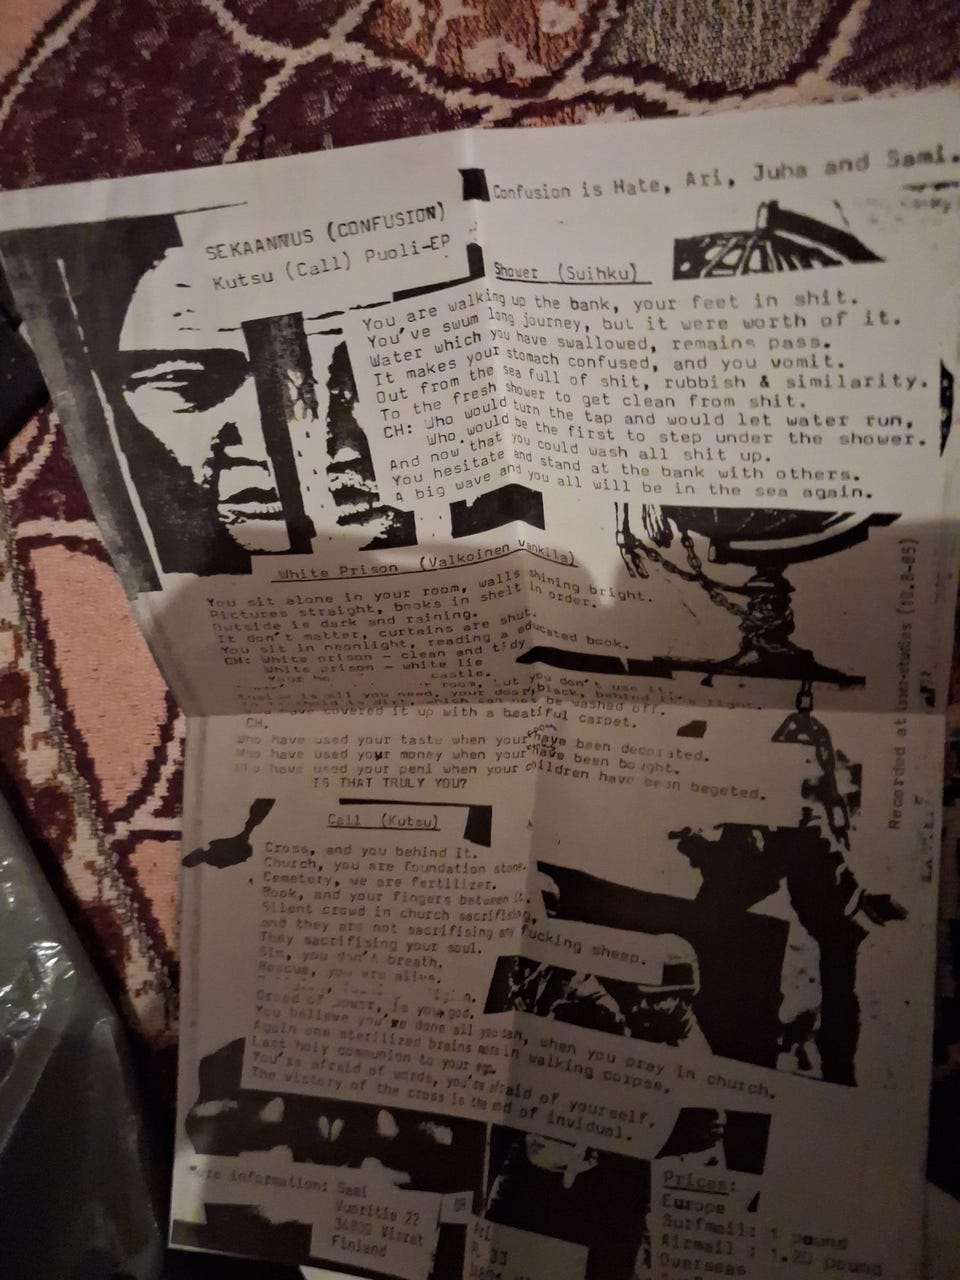 Confusion is Hate, Ari, Juha and Sami.
SEKAANNUS (CONFUSION)
Kutsu (Call) Puoli-EP
Shower (Suihku)
You are walking up the bank, your feet in shit.
You've swum long journey, but it were worth of it.
Water which you have swallowed, remains pass.
It makes your stomach confused, and you vomit.
Out from the sea full of shit, rubbish & similarity.
To the fresh shower to get clean from shit.
CH: Who would turn the tap and would let water run,
Who would be the first to step under the shower.
And now that you could wash all shit up.
You hesitate and stand at the bank with others.
A big wave and you all will be in the sea again.
White Prison (Valkoinen Vankila)
You sit alone in your room, walls shining bright.
Pictures straight, books in shelf in order.
Outside is dark and raining.
It don't matter, curtains are shut.
You sit in neonlight, reading a educated book.
CH: White prison - clean and tidy
White prison - white lie
Your castle.
room, but you don't use it.
is all you need, your door, black, behind it's light.
is dirt, which can not be washed off.
covered it up with a beatiful carpet.
CH.
Who have used your taste when your have been decorated.
Who have used your money when your have been bought.
Who have used your peni when your children have been begeted.
IS THAT TRULY YOU?
Call (Kutsu)
Cross, and you behind it.
Church, you are foundation stone.
Cemetery, we are fertilizer.
Book, and your fingers between it.
Silent crowd in church sacrifising,
and they are not sacrifising any fucking sheep.
They sacrifising your soul.
Sin, you don't breath.
Rescue, you are alive.
Greed of power, is your god.
You believe you've done all you can, when you pray in church.
Again one sterilized brains in walking corpse.
Last holy communion to your ego.
You're afraid of words, you're afraid of yourself.
The victory of the cross is the end of invidual.
Recorded at studios (10.8-85)
More information: Sami
Vuoritie 22
34800 Virrat
Finland
Ari
33
Prices:
Europe
Surfmail: 1 pound
Airmail : 1.20 pound
Overseas